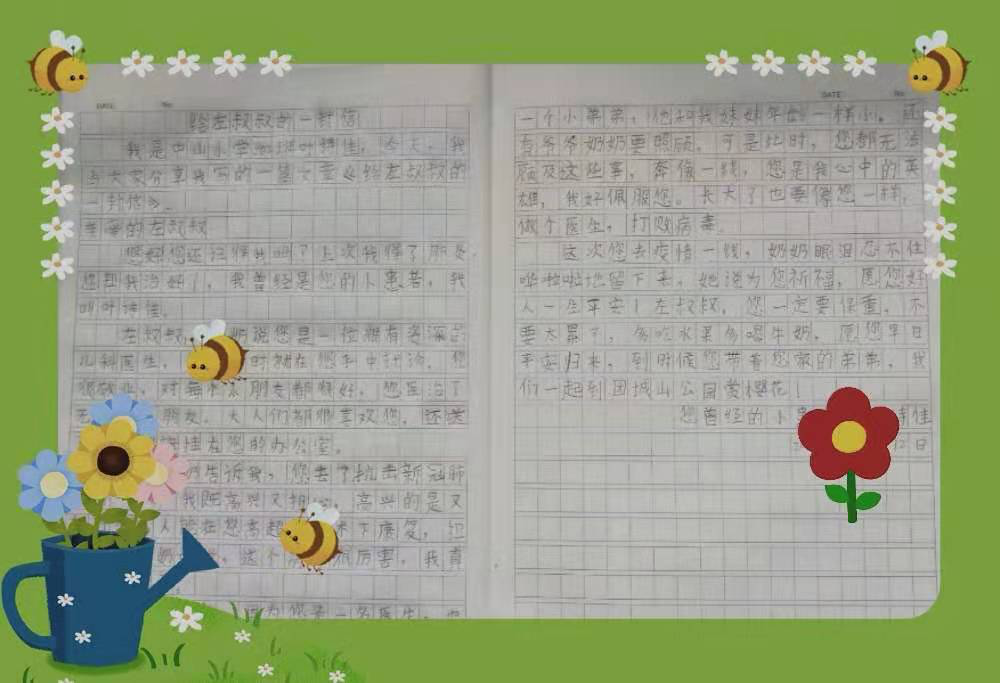 DATE No
给左叔叔的一封信
我是中山小学 班叶 佳,今天,我
与大家分享我写的一篇文章《给左叔叔的
一封信》。
亲爱的左叔叔
您好!您还记得我吗?上次我得了肺炎
您却我治好了,我曾经是您的小患者,我
叫叶 佳。
左叔叔, 听说您是一位拥有资深的
儿科医生, 时就在您手中治疗,您
很 ,对每个小朋友都很好,您医治了
无 朋友,大人们都很喜欢您,还送
挂在您的办公室。
告诉我,您去了抗击新冠肺
我既高兴又担心,高兴的是又
人 在您高超 术下康复,担
奶 ,这个 很厉害,我真
为您是一名医生,
DATE No
一个小弟弟,他和我妹妹年龄一样小。还
有爷爷奶奶要照顾。可是此时,您都无法
顾及这些事,奔像一线,您是我心中的英
雄,我好佩服您。长大了也要像您一样,
做个医生,打败病毒。
这次您去疫情一线,奶奶眼泪忍不住
哗啦啦地留下来,她说为您祈福,愿您好
人一生平安!左叔叔,您一定要保重,不
要太累了,多吃水果多喝牛奶,愿您早日
平安归来,到时候您带着您家的弟弟,我
们一起到团城山公园赏樱花!
您曾经的小患 佳
日